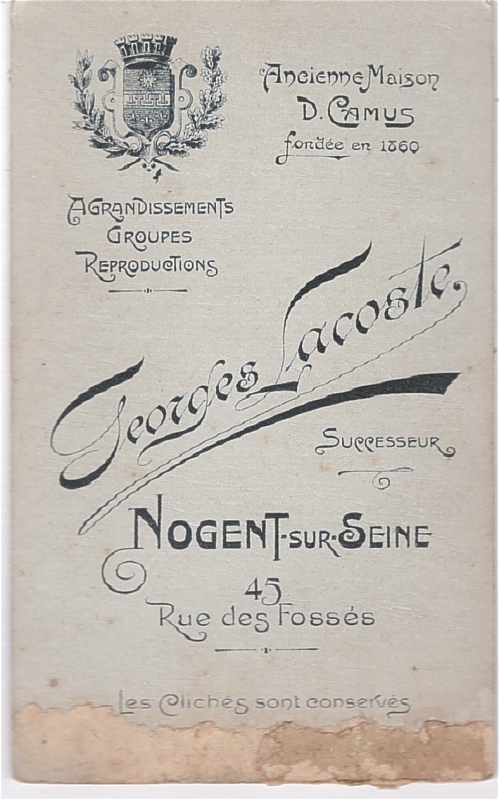 Ancienne Maison
D. Camus
fondée en 1860
Agrandissements
Groupes
Reproductions
Georges Lacoste
Successeur
Nogent-sur-Seine
45
Rue des Fossés
Les Clichés sont conservés